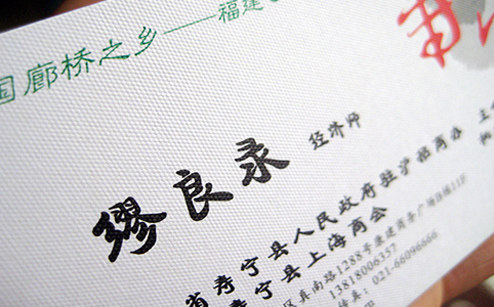 国廊桥之乡——福建
缪良录 经济师
省寿宁县人民政府驻沪招商办 主
寿宁县上海商会
区真南路1288号康建商务广场 11F
13818006357
真：021-66096666